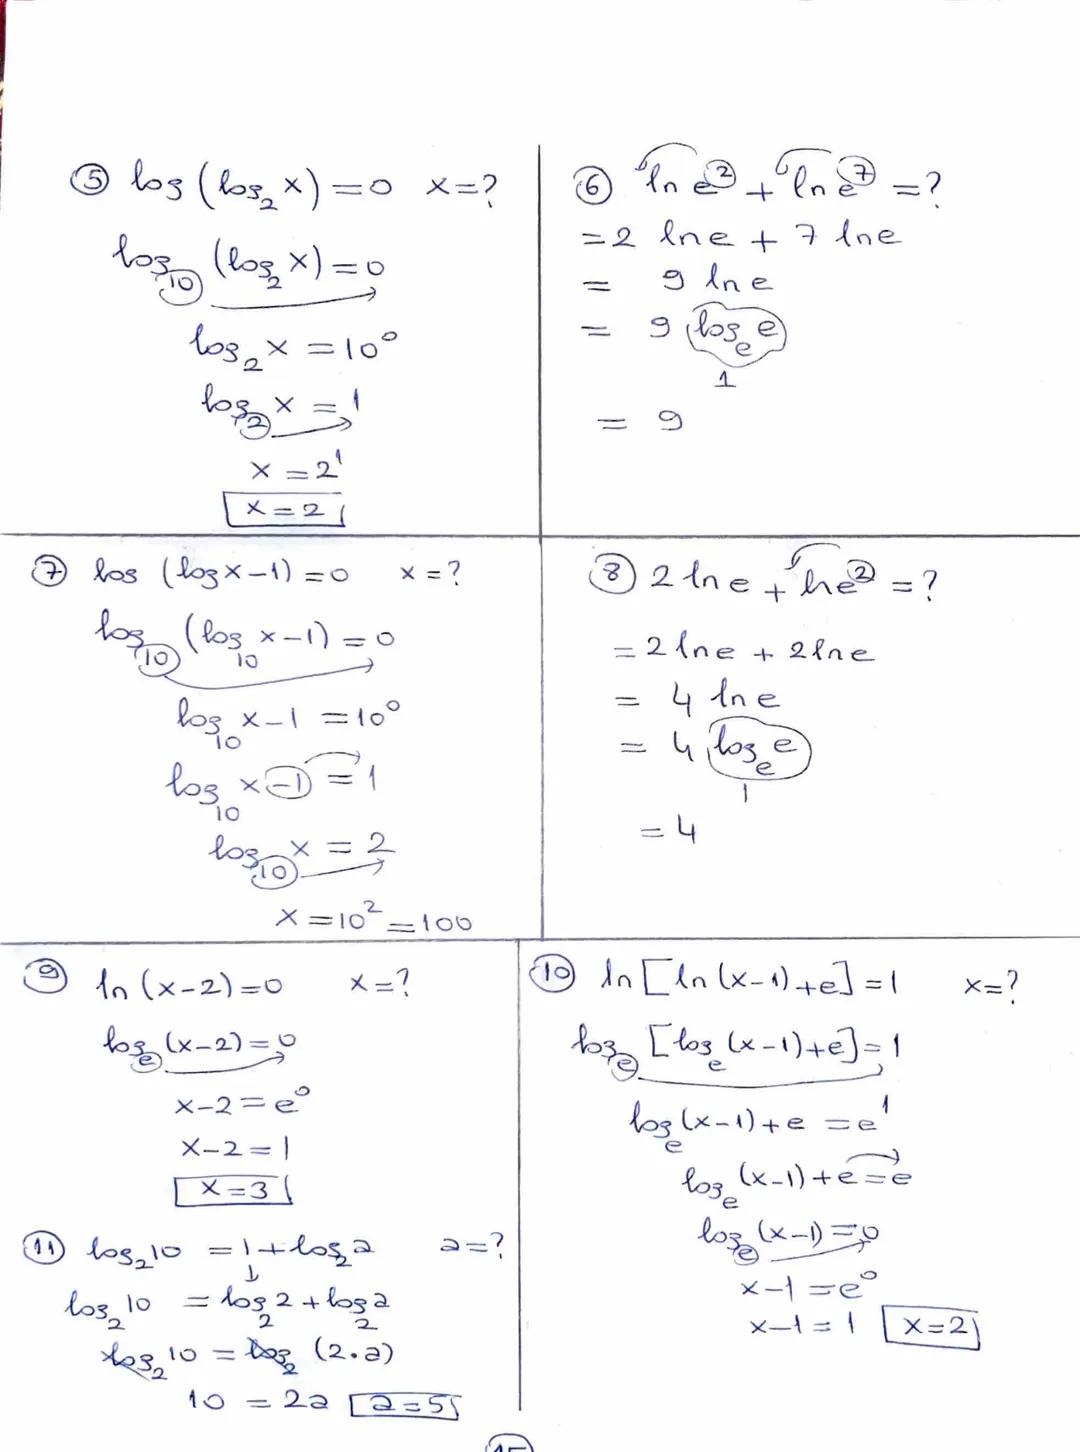 ⑤ log (log₂ x) = 0 x = ?
log₁₀ (log₂ x) = 0
log₂ x = 10⁰
log₂ x = 1
x = 2¹
x = 2
⑥ ln e² + ln e⁷ = ?
= 2 ln e + 7 ln e
= 9 ln e
= 9 logₑ e
1
= 9
⑦ log (log x - 1) = 0 x = ?
log₁₀ (log₁₀ x - 1) = 0
log₁₀ x - 1 = 10⁰
log₁₀ x - 1 = 1
log₁₀ x = 2
x = 10² = 100
⑧ 2 ln e + ln e² = ?
= 2 ln e + 2 ln e
= 4 ln e
= 4 logₑ e
1
= 4
⑨ ln (x-2) = 0 x = ?
logₑ (x-2) = 0
x-2 = e⁰
x-2 = 1
x = 3
⑩ ln [ln (x-1) + e] = 1 x = ?
logₑ [logₑ (x-1) + e] = 1
logₑ (x-1) + e = e¹
logₑ (x-1) + e = e
logₑ (x-1) = 0
x-1 = e⁰
x-1 = 1 x = 2
⑪ log₂ 10 = 1 + log₂ a a = ?
log₂ 10 = log₂ 2 + log₂ a
log₂ 10 = log₂ (2.a)
10 = 2a a = 5
15